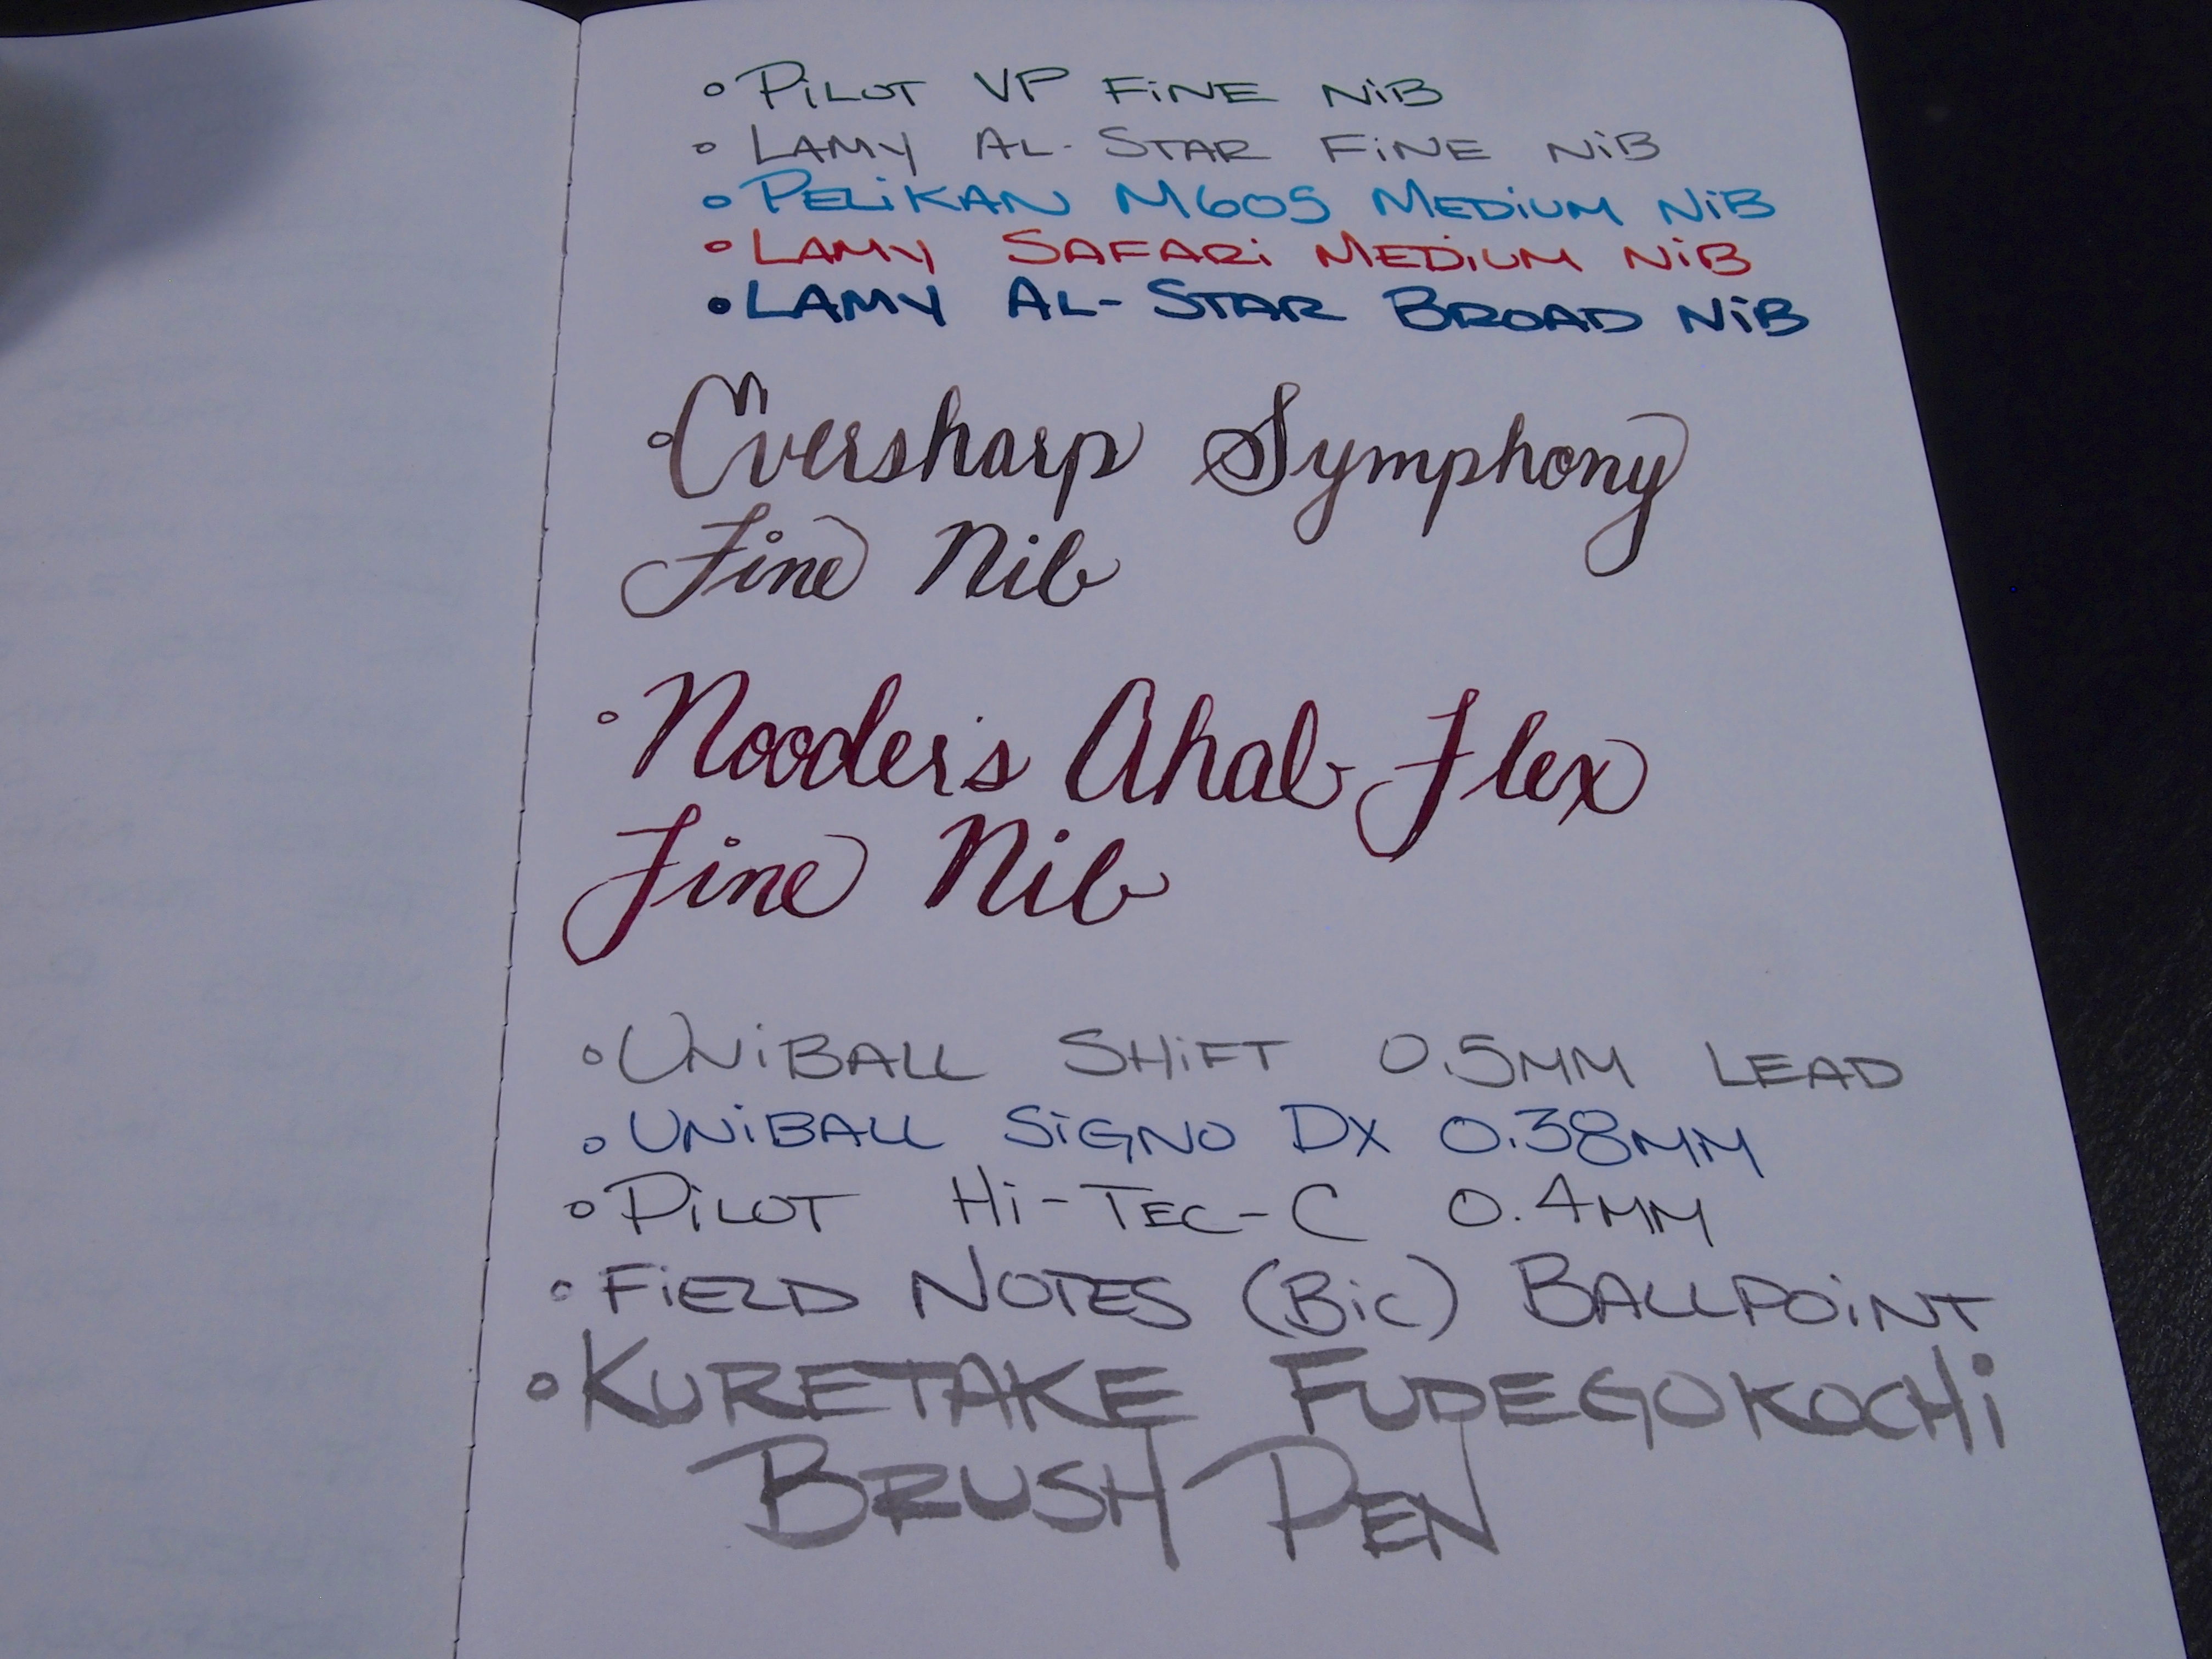 ∘ PiLOT VP FiNE NiB
∘ LAMY AL-STAR FiNE NiB
∘ PELiKAN M605 MEDiUM NiB
∘ LAMY SAFARi MEDiUM NiB
∘ LAMY AL-STAR BROAD NiB
∘ Eversharp Symphony
Fine Nib
∘ Nooder's Ahab Flex
Fine Nib
∘ UNiBALL SHiFT 0.5MM LEAD
∘ UNiBALL SiGNO DX 0.38MM
∘ PiLOT Hi-TEC-C 0.4MM
∘ FiELD NOTES (BiC) BALLPOiNT
∘ KURETAKE FUDEGOKOCHi
BRUSH PEN